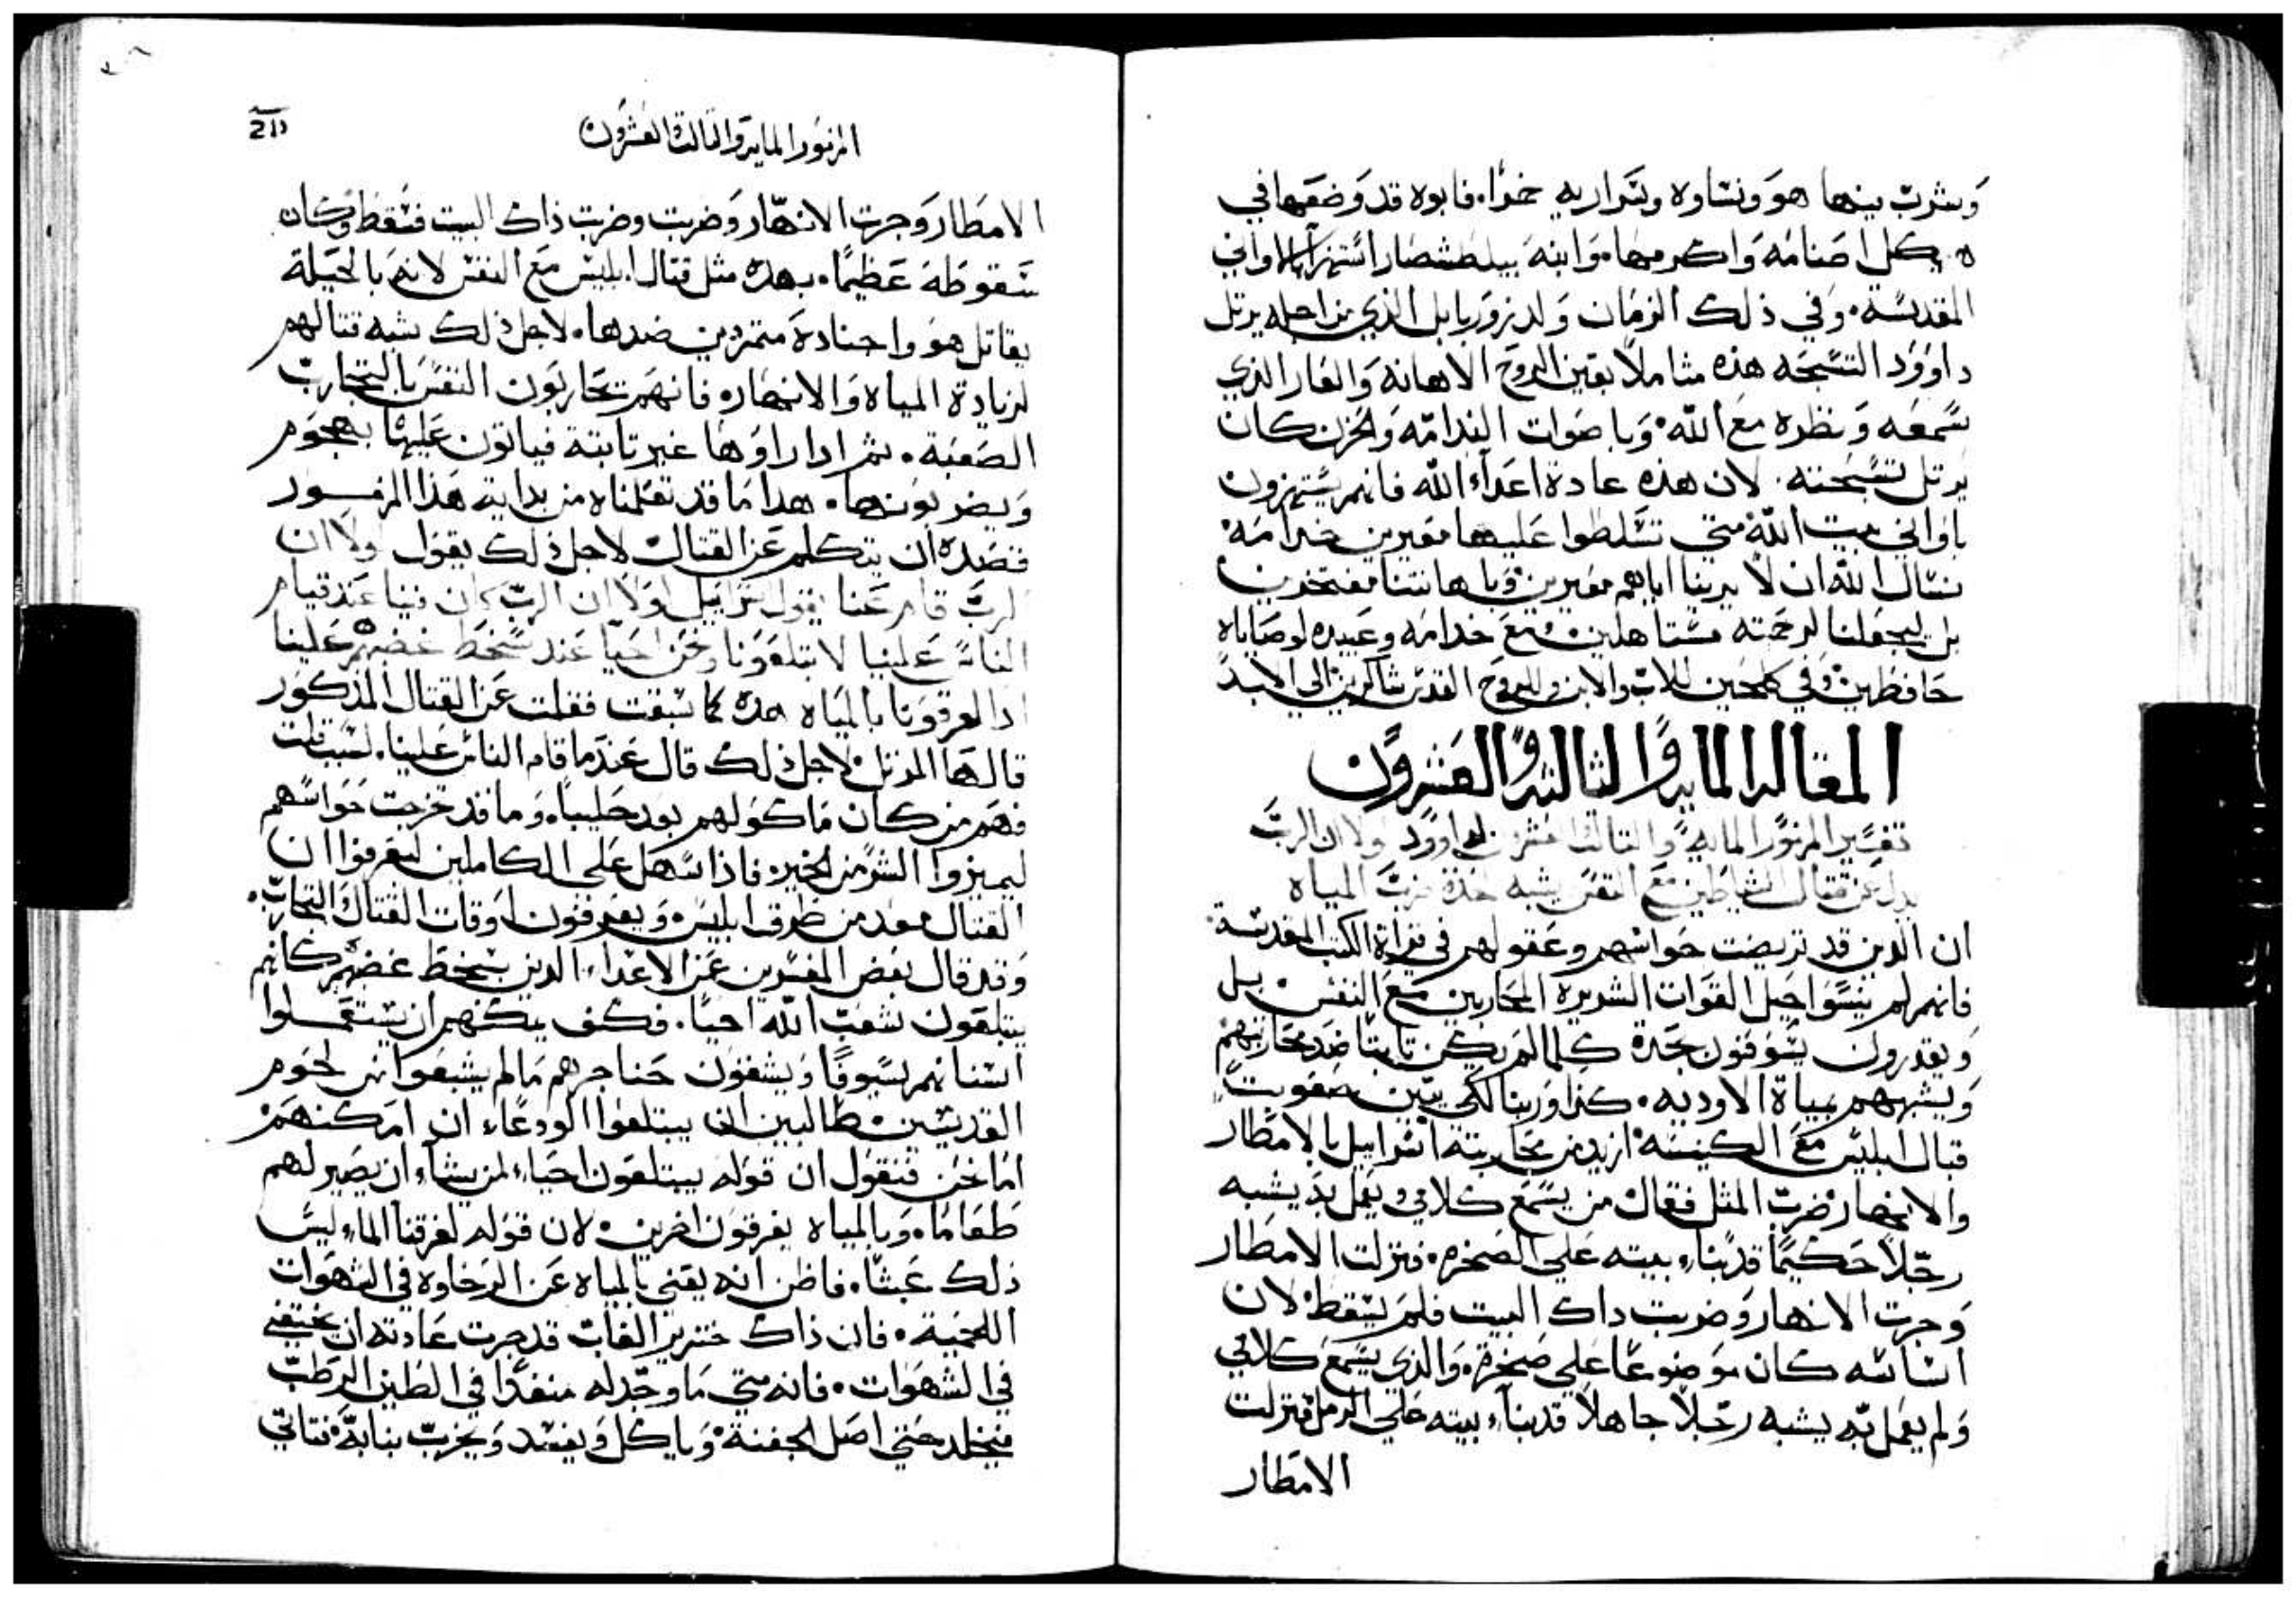 وشرب بينها هو ونساوه وسراريه خمرًا. فابوه قد وضعها في
هيكل اصنامه واكرمها. وابنه بيلطشصار استهزا باواني
المقدسه. وفي ذلك الزمان ولد زوربابل الذي من اجله يرتل
داوود التسبحه هذه متاملاً بعين الروح الاهانه والعار الذي
سمعه ونظره مع الله. وباصوات الندامه والحزن كان
يرتل تسبحته. لان هذه عادة اعدآء الله فانهم يستهزون
باواني بيت الله متي تسلطوا عليها معيرين خدامه.
نسال الله ان لا يرينا اياهم معيرين وباهانتنا مفتخرين
بل ليجعلنا لرحمته مستاهلين ومع خدامه وعبيده لوصاياه
حافظين وفي كل حين للاب والابن والروح القدس شاكرين الي الابد
المقاله المايه والثالثه والعشرون
تفسير المزمور المايه والثالث عشرين لداوود لولا ان الرب
يدل عن قتال الشياطين مع النفس يشبه هذه ضربة المياه
ان الذين قد تريضت حواسهم وعقولهم في قراة الكتب المقدسه.
فانهم لم ينسوا حيل القوات الشريرة المحاربين مع النفس بل
ويقدرون يثوقنون بحدة كلما لم يكن ثابتًا ضد محاربتهم
ويشبههم بمياة الاوديه. كذا وربنا لكي يبين صعوبت
قتال ابليس مع الكنيسه ازيد من محاربته اسراييل بالامطار
والانهار ضرب المثل فقال من يسمع كلامي ويعمل به يشبه
رجلاً حكيمًا قد بناء بيته علي الصخره. فنزلت الامطار
وجرت الانهار وضربت داك البيت فلم يسقط لان
اساسه كان موضوعًا علي صخرة. والذي يسمع كلامي
ولم يعمل به يشبه رجلاً جاهلاً قد بناء بيته علي الرمل فنزلت
الامطار
المزمور المايه والثالث العشرون
211
الامطار وجرت الانهار وضربت وضربت ذاك البيت فسقط وكان
سقوطه عظيمًا. بهده مثل قتال ابليس مع النفس لانه بالحيلة
يقاتل هو واجناده متمردين ضدها. لاجل ذلك شبه قتالهم
لزيادة المياه والانهار. فانهم يحاربون النفس بالتجارب
الصعبة. ثم ادا راوها غير تابتة فياتون عليها بهجوم
ويضربونها. هدا ما قد تعلمناه من بداية هذا المزمور
قصده ان يتكلم عن القتال لاجل ذلك يقول لولا ان
الرب قام عنا يقول اسراييل لولا ان الرب كان فينا عند قيام
الناس علينا لابتلعونا ونحن احيا عند سخط غضبهم علينا
ادا لغرقونا بالمياه هده كما سبقت فقلت عن القتال المذكور
قالها المرتل لاجل ذلك قال عندما قام الناس علينا.
فهم من كان ماكولهم بعد حليبًا. وما قد تخرجت حواسهم
ليميزوا الشر من الخير. فاذا سهل علي الكاملين ليعرفوا ان
القتال معد من طرف ابليس ويعرفون اوقات القتال والتجارب.
وقد قال بعض المفسرين عن الاعداء الذين بسخط غضبهم كانهم
يبتلعون شعب الله احيًا. فكيف يمكنهم ان يستعملوا
اسنانهم سيوفًا ويشقون حناجرهم ما لم يشبعوا من لحوم
القديسين طالبين ان يبتلعوا الودعاء ان امكنهم
اما نحن فنقول ان قوله يبتلعون احياء لمن يشاء ان يصير لهم
طعامًا. وبالمياه يغرقون اخرين. لان قوله لغرقنا الماء ليس
ذلك عبثًا. فاظن انه يعني بالمياه عن الرخاوه في الشهوات
اللحمية. فان ذاك خنزير الغاب قد جرت عادته ان يختفي
في الشهوات. فانه متي ما وجد له منفدًا في الطين الرطب
حتي اصل الجفنة وياكل ويفسد ويخرب بنابه فتاتي